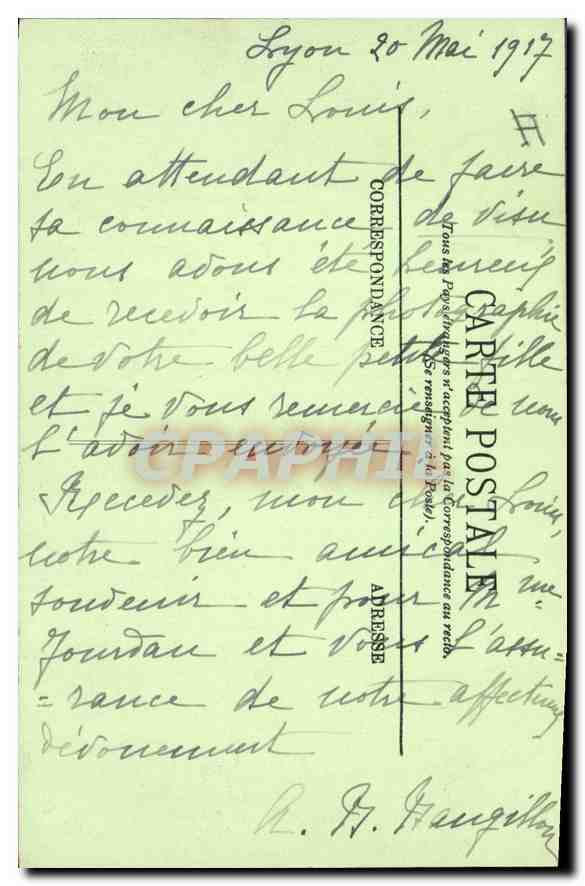 Lyon 20 Mai 1917
Mon cher Louis,
En attendant de faire
sa connaissance de visu
nous avons été heureux
de recevoir la photographie
de votre belle petite fille
et je vous remercie de nous
l'avoir envoyée.
Recevez, mon cher Louis,
notre bien amical
souvenir et pour Mme
Jourdan et vous l'assu=
=rance de notre affectueux
dévouement
A. H.
CARTE POSTALE
Tous les Pays étrangers n'acceptent pas la Correspondance au recto.
(Se renseigner à la Poste).
CORRESPONDANCE
ADRESSE
CPAPHIL